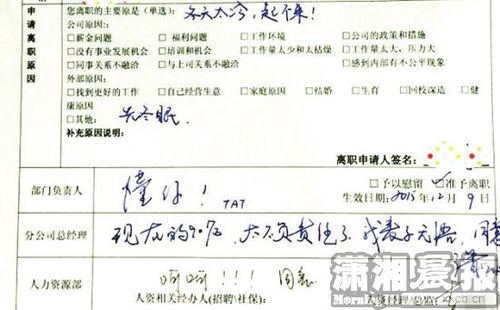 申请离职原因
您离职的主要原是(单选): 冬天太冷,起不来!
公司原因:
□薪金问题 □福利问题 □工作环境 □公司的政策和措施
□没有事业发展机会 □培训和机会 □工作量太少和太枯燥 □工作量太大,压力大
□同事关系不融洽 □与上司关系不融洽 □感到内部有不公平现象
外部原因:
□找到更好的工作 □自己经营生意 □家庭原因 □结婚 □生育 □回校深造 □健
康原因
□其他: 去冬眠.
补充原因说明:
离职申请人签名:
部门负责人 懂你! TAT
□予以慰留 准予离职
生效日期: 2015年12月9日
分公司总经理 现在的90后,太不负责任了,我表示无语,同意
人力资源部 呵呵!!! 同意
人资相关经办人(招聘\社保):
潇湘晨报